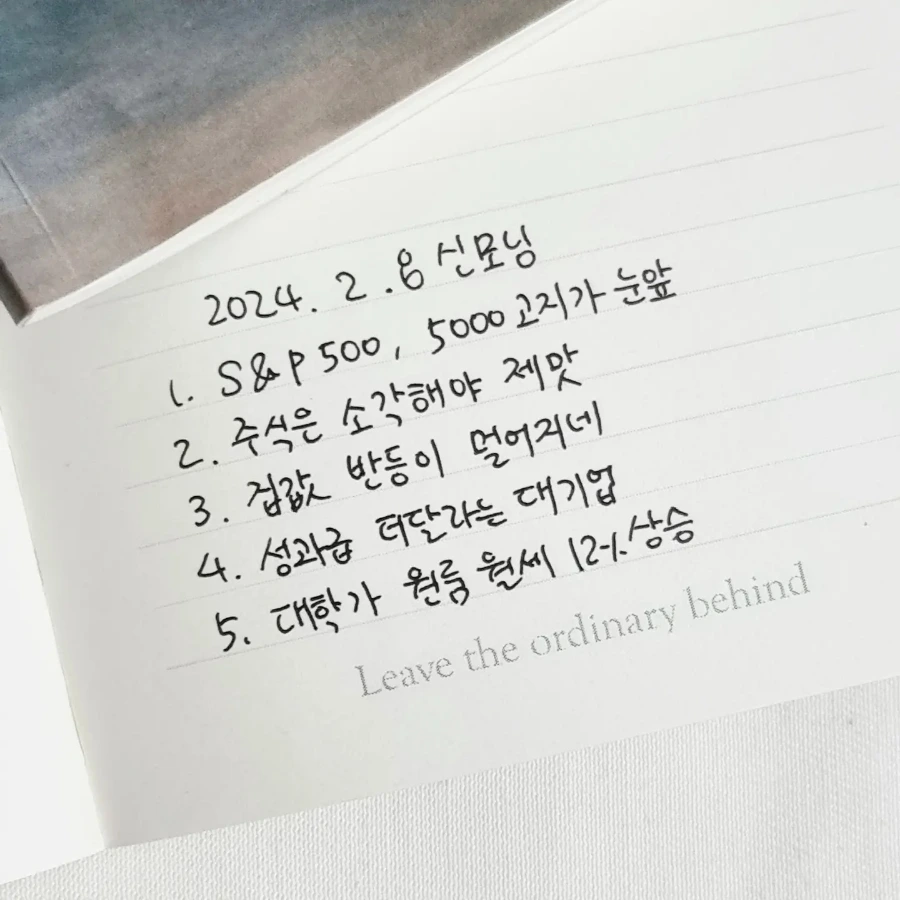 2024. 2. 8 신모닝
1. S&P 500, 5000 고지가 눈앞
2. 주식은 소각해야 제맛
3. 집값 반등이 멀어지네
4. 성과급 더달라는 대기업
5. 대학가 원룸 월세 12% 상승
Leave the ordinary behind